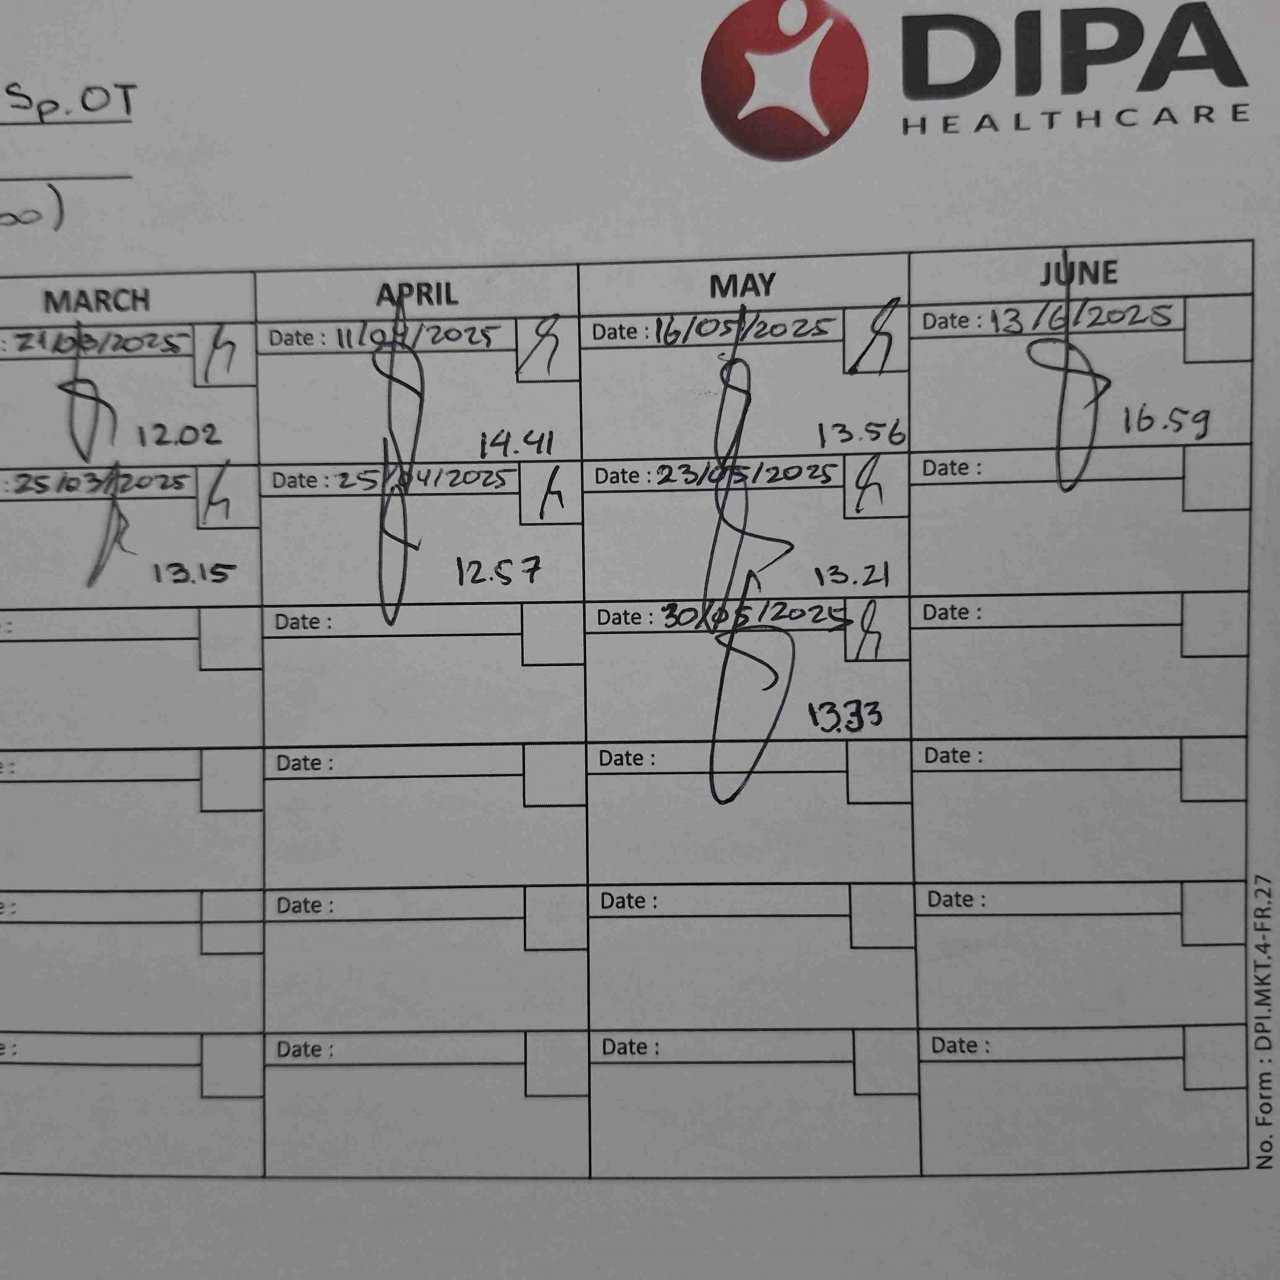 DIPA
HEALTHCARE
Sp.OT
MARCH APRIL MAY JUNE
: 21/03/2025 Date : 11/04/2025 Date : 16/05/2025 Date : 13/6/2025
12.02 14.41 13.56 16.59
: 25/03/2025 Date : 25/04/2025 Date : 23/05/2025 Date :
13.15 12.57 13.21
: Date : Date : 30/05/2025 Date :
13.33
e : Date : Date : Date :
e : Date : Date : Date :
e : Date : Date : Date :
No. Form : DPI.MKT.4-FR.27